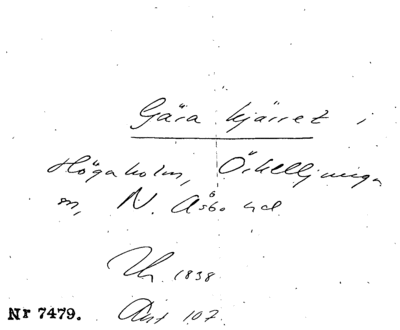 Gåra kjärret i
Högaholm, Örkelljunga
sn, N. Åsbo hd.
Uh. 1838
Akt 107.
Nr 7479.